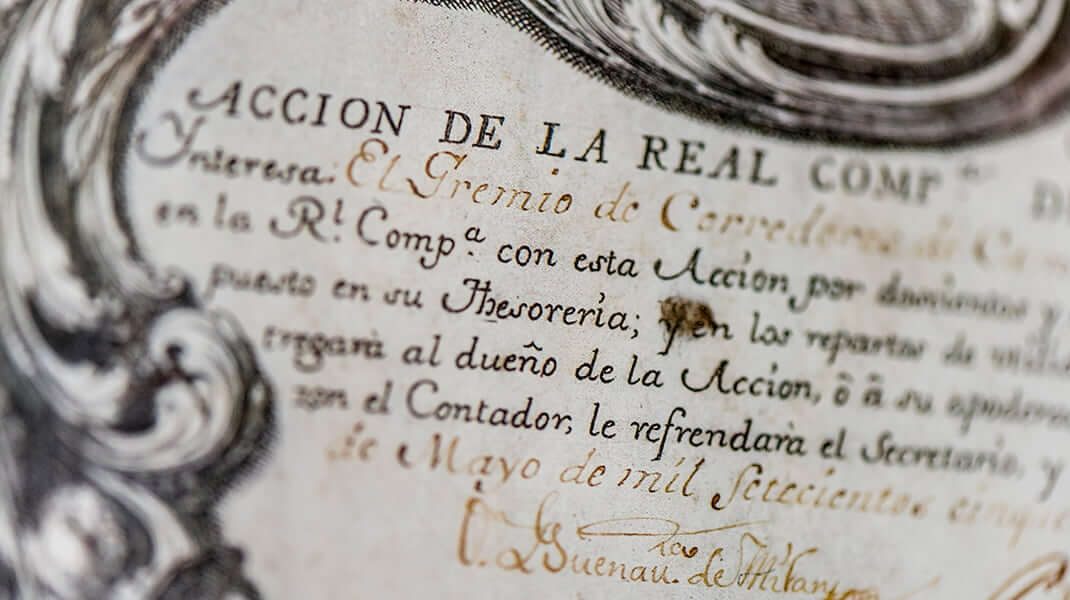 ACCION DE LA REAL COMPᵃ
Ynteresa: El Gremio de Corredores de
en la Rˡ. Compᵃ. con esta Accion por
puesto en su Thesoreria; y en los repartos de
tregarà al dueño de la Accion, ô â su
zon el Contador, le refrendarà el Secretario, y
de Mayo de mil Setecientos
Buenau. de Milans